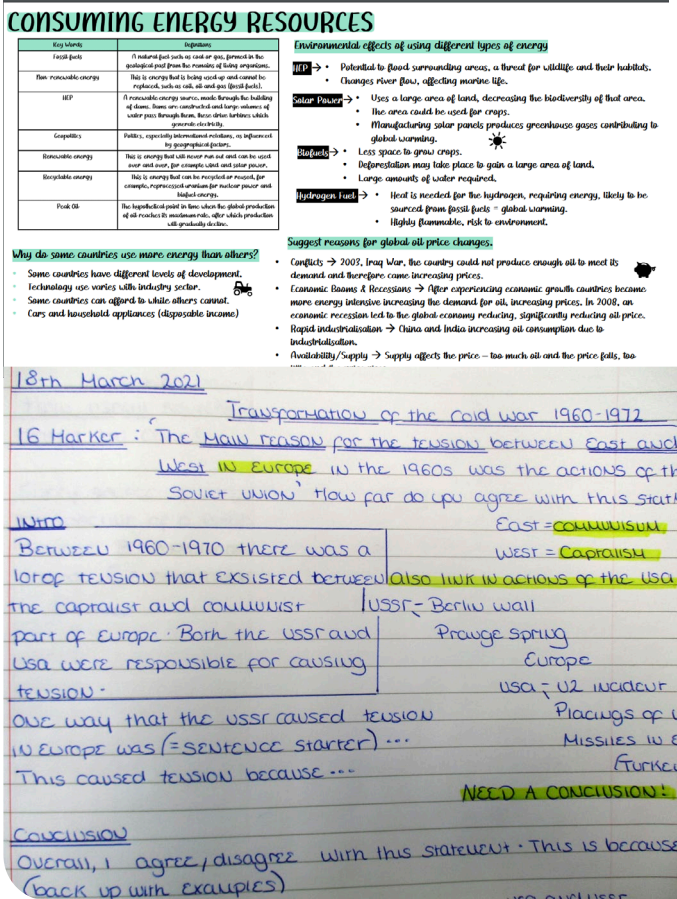 CONSUMING ENERGY RESOURCES
Key Words
Definitions
Fossil fuels
A natural fuel such as coal or gas, formed in the
geological past from the remains of living organisms.
Non-renewable energy
This is energy that is being used up and cannot be
replaced, such as coil, oil and gas (fossil fuels).
HEP
A renewable energy source, made through the building
of dams. Dams are constructed and large volumes of
water pass through them, these drive turbines which
generate electricity.
Geopolitics
Politics, especially international relations, as influenced
by geographical factors.
Renewable energy
This is energy that will never run out and can be used
over and over, for example wind and solar power.
Recyclable energy
This is energy that can be recycled or reused, for
example, reprocessed uranium for nuclear power and
biofuel energy.
Peak Oil
The hypothetical point in time when the global production
of oil reaches its maximum rate, after which production
will gradually decline.
Why do some countries use more energy than others?
• Some countries have different levels of development.
• Technology use varies with industry sector.
• Some countries can afford to while others cannot.
• Cars and household appliances (disposable income)
Environmental effects of using different types of energy
HEP → • Potential to flood surrounding areas, a threat for wildlife and their habitats.
• Changes river flow, affecting marine life.
Solar Power → • Uses a large area of land, decreasing the biodiversity of that area.
• The area could be used for crops.
• Manufacturing solar panels produces greenhouse gases contributing to
global warming.
Biofuels → • Less space to grow crops.
• Deforestation may take place to gain a large area of land.
• Large amounts of water required.
Hydrogen Fuel → • Heat is needed for the hydrogen, requiring energy, likely to be
sourced from fossil fuels = global warming.
• Highly flammable, risk to environment.
Suggest reasons for global oil price changes.
• Conflicts → 2003, Iraq War, the country could not produce enough oil to meet its
demand and therefore came increasing prices.
• Economic Booms & Recessions → After experiencing economic growth countries become
more energy intensive increasing the demand for oil, increasing prices. In 2008, an
economic recession led to the global economy reducing, significantly reducing oil price.
• Rapid industrialisation → China and India increasing oil consumption due to
industrialisation.
• Availability/Supply → Supply affects the price – too much oil and the price falls, too
18th March 2021
Transformation of the Cold War 1960-1972
16 Marker : 'The main reason for the tension between East and
West in Europe in the 1960s was the actions of th
Soviet Union' How far do you agree with this stat
Intro
Between 1960-1970 there was a
lot of tension that exsisted between
the capitalist and communist
part of Europe. Both the USSR and
USA were responsible for causing
tension.
East = communisum
West = Capitalism
also link in actions of the USA
USSR - Berlin wall
Prauge spring
Europe
USA - U2 incident
Placings of
Missiles in
(Turke
One way that the USSR caused tension
in Europe was (= sentence starter) ...
This caused tension because ...
NEED A CONCLUSION!
Conclusion
Overall, I agree/disagree with this statement. This is because
(back up with examples)